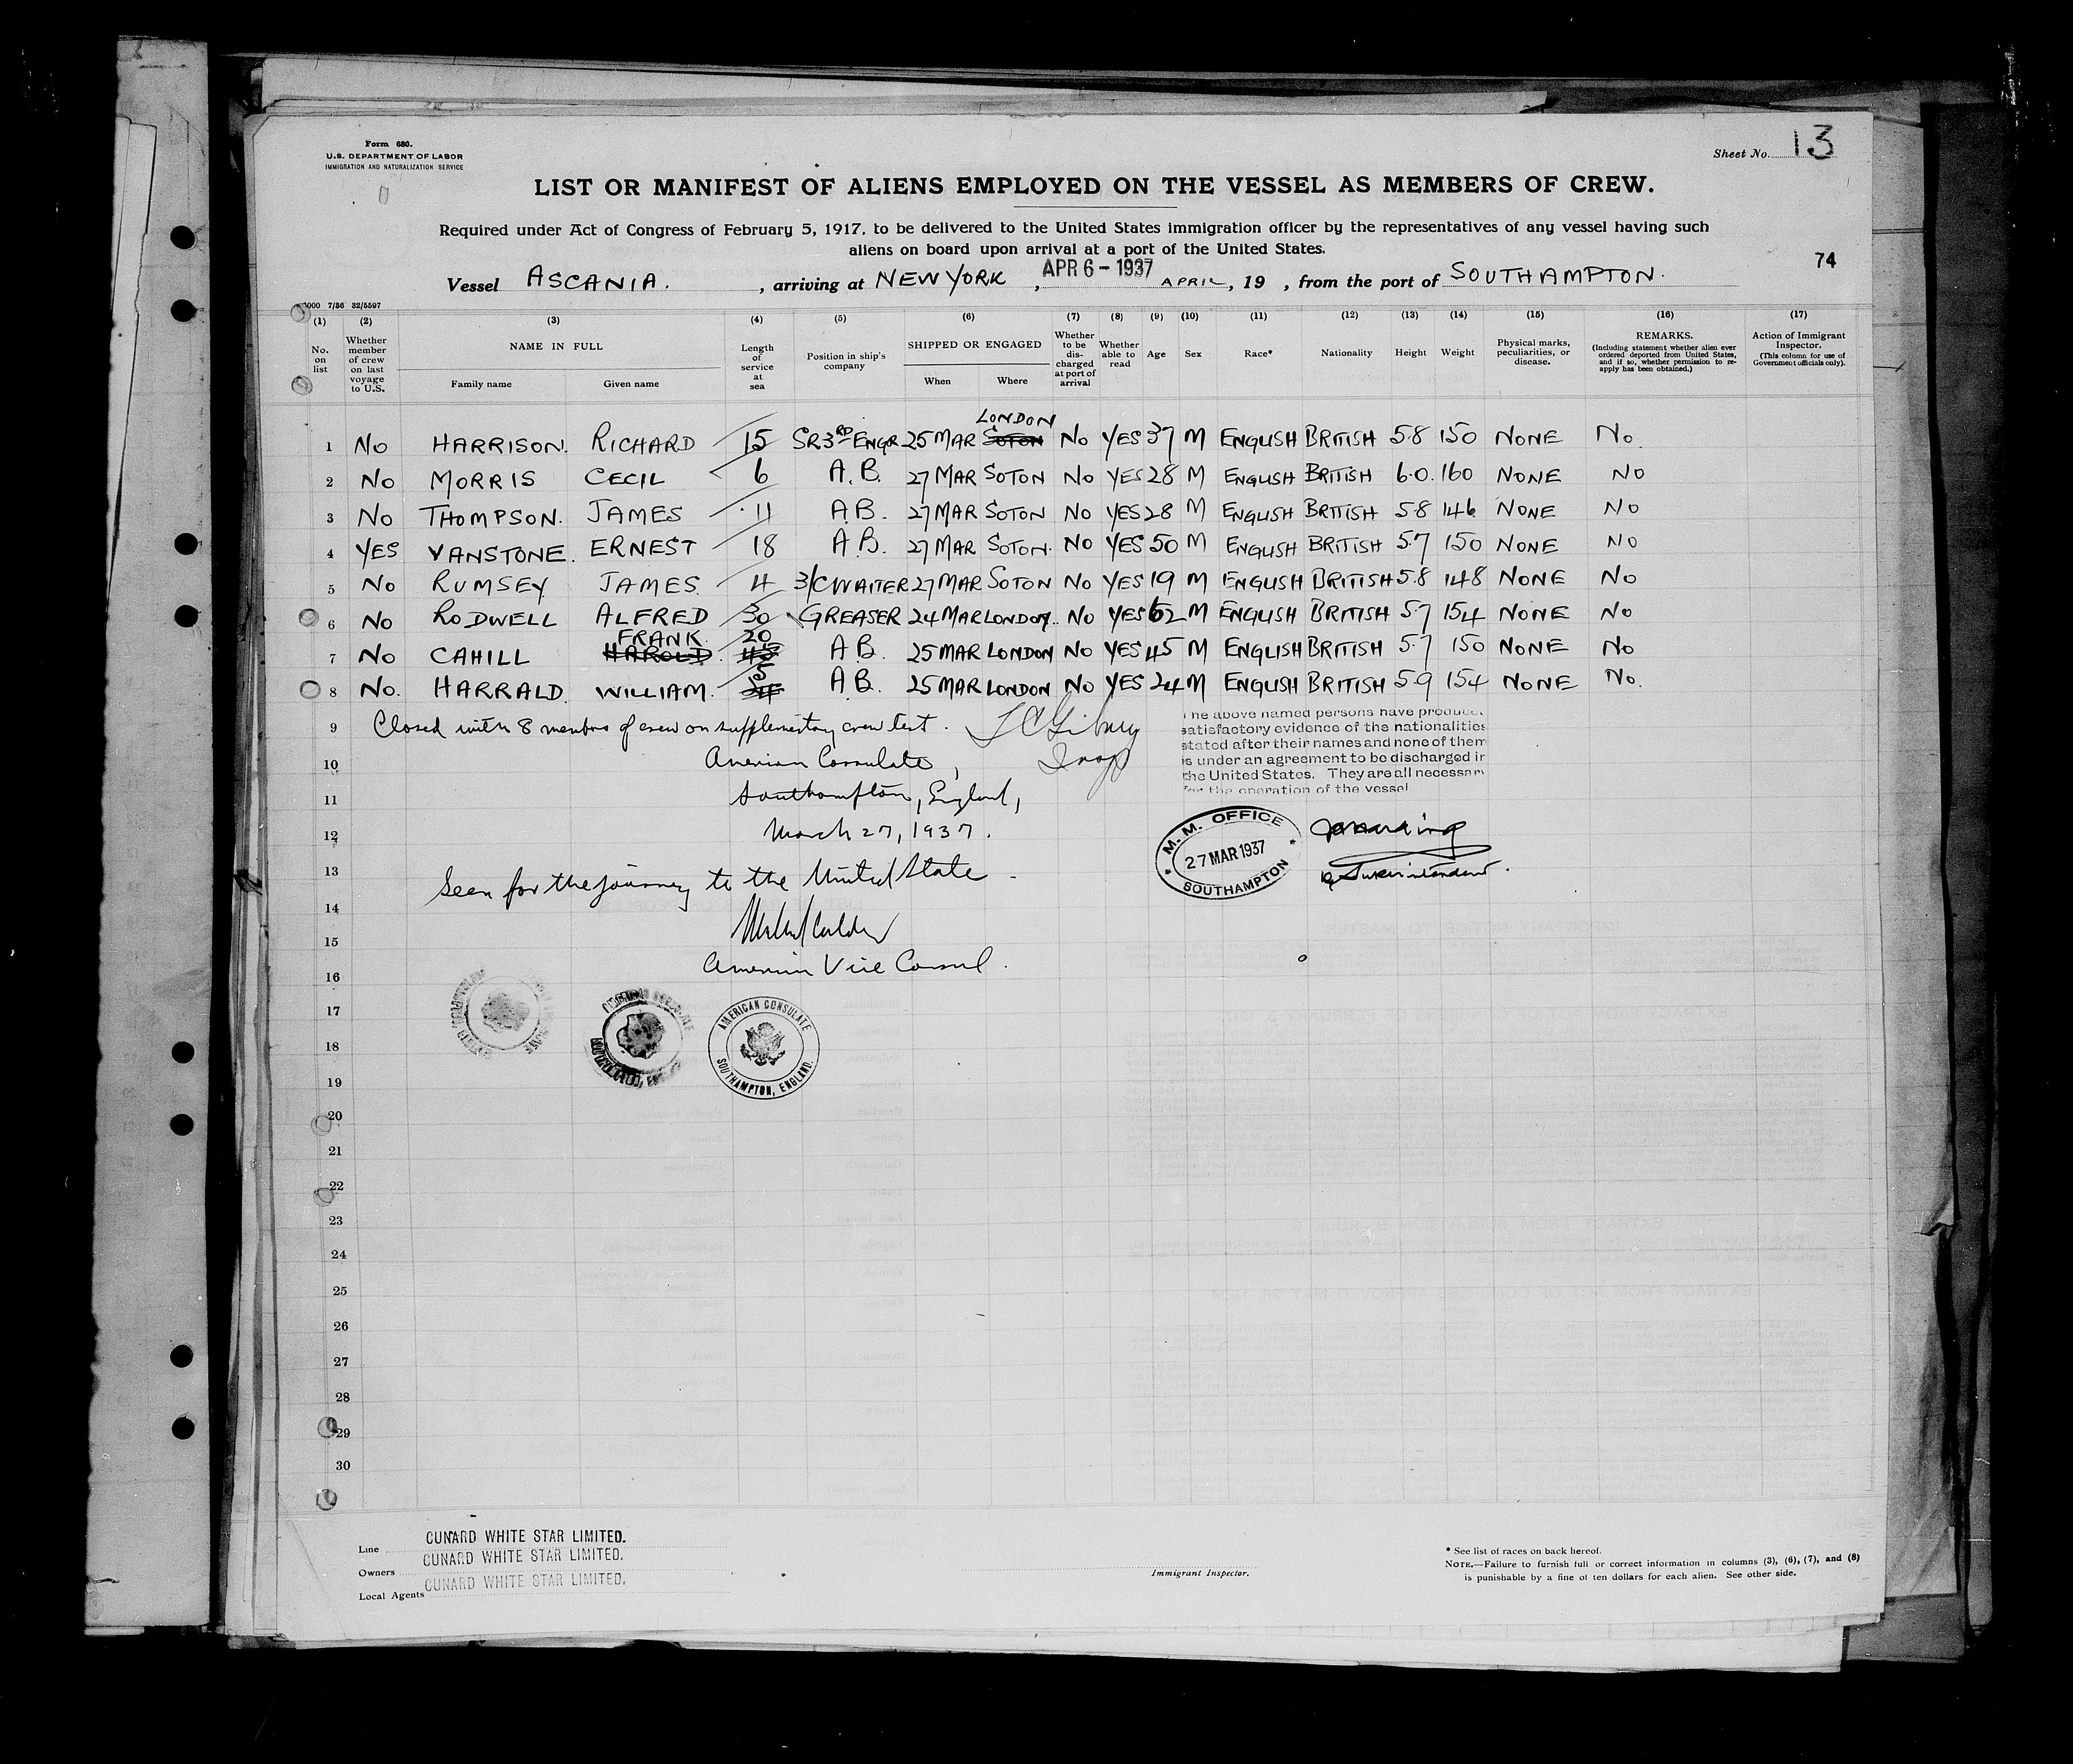 Form 680.
U.S. DEPARTMENT OF LABOR
IMMIGRATION AND NATURALIZATION SERVICE
Sheet No. 13
LIST OR MANIFEST OF ALIENS EMPLOYED ON THE VESSEL AS MEMBERS OF CREW.
Required under Act of Congress of February 5, 1917, to be delivered to the United States immigration officer by the representatives of any vessel having such
aliens on board upon arrival at a port of the United States.
74
APR 6 - 1937
Vessel ASCANIA. , arriving at NEW YORK , APRIL , 19 , from the port of SOUTHAMPTON.
7/36 32/5597
(1) (2) (3) (4) (5) (6) (7) (8) (9) (10) (11) (12) (13) (14) (15) (16) (17)
No. on list
Whether member of crew on last voyage to U.S.
NAME IN FULL
Family name Given name
Length of service at sea
Position in ship's company
SHIPPED OR ENGAGED
When Where
Whether to be discharged at port of arrival
Whether able to read
Age
Sex
Race*
Nationality
Height
Weight
Physical marks, peculiarities, or disease.
REMARKS.
(Including statement whether alien ever ordered deported from United States, and if so, whether permission to re-apply has been obtained.)
Action of Immigrant Inspector.
(This column for use of Government officials only).
LONDON
1 No HARRISON. RICHARD 15 SR 3RD ENGR 25 MAR SOTON No YES 37 M ENGLISH BRITISH 5.8 150 NONE No.
2 No MORRIS CECIL 6 A.B. 27 MAR SOTON No YES 28 M ENGLISH BRITISH 6.0. 160 NONE NO
3 No THOMPSON. JAMES 11 A.B. 27 MAR SOTON NO YES 28 M ENGLISH BRITISH 5.8 146 NONE NO
4 YES VANSTONE. ERNEST 18 A.B. 27 MAR SOTON. NO YES 50 M ENGLISH BRITISH 5.7 150 NONE NO
5 No RUMSEY JAMES. 4 3/C WAITER 27 MAR SOTON NO YES 19 M ENGLISH BRITISH 5.8 148 NONE No
6 No RODWELL ALFRED 30 GREASER 24 MAR LONDON. No YES 62 M ENGLISH BRITISH 5.7 154 NONE No
FRANK. 20
7 No CAHILL HAROLD 45 A.B. 25 MAR LONDON NO YES 45 M ENGLISH BRITISH 5.7 150 NONE No
5
8 No. HARRALD. WILLIAM. 24 A.B. 25 MAR LONDON NO YES 24 M ENGLISH BRITISH 5.9 154 NONE No.
9 Closed with 8 members of crew on supplementary crew list.
10 American Consulate,
11 Southampton, England,
12 March 27, 1937.
13 Seen for the journey to the United State
14
15
16 American Vice Consul.
The above named persons have produced
satisfactory evidence of the nationalities
stated after their names and none of them
is under an agreement to be discharged in
the United States. They are all necessary
for the operation of the vessel
M.M. OFFICE
27 MAR 1937
SOUTHAMPTON
Superintendent.
AMERICAN CONSULATE
SOUTHAMPTON, ENGLAND.
17
18
19
20
21
22
23
24
25
26
27
28
29
30
Line CUNARD WHITE STAR LIMITED.
Owners CUNARD WHITE STAR LIMITED.
Local Agents CUNARD WHITE STAR LIMITED.
Immigrant Inspector.
* See list of races on back hereof.
NOTE.—Failure to furnish full or correct information in columns (3), (6), (7), and (8)
is punishable by a fine of ten dollars for each alien. See other side.